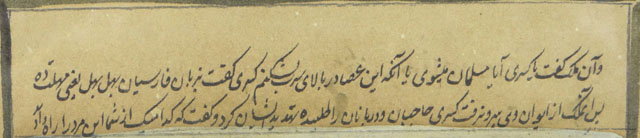 وآن ملک گفت یا کسری آیا مسلمان میشوی یا آنکه این عصا در بالای سرت بشکنم کسری گفت بزبان فارسیان بهل بهل یعنی مهلت ده
پس آن ملک از ایوان وی بیرون رفت کسری حاجبان و دربانان را طلبیده تهدید ایشان کرد و گفت که کدامیک از شما این مرد را راه داد